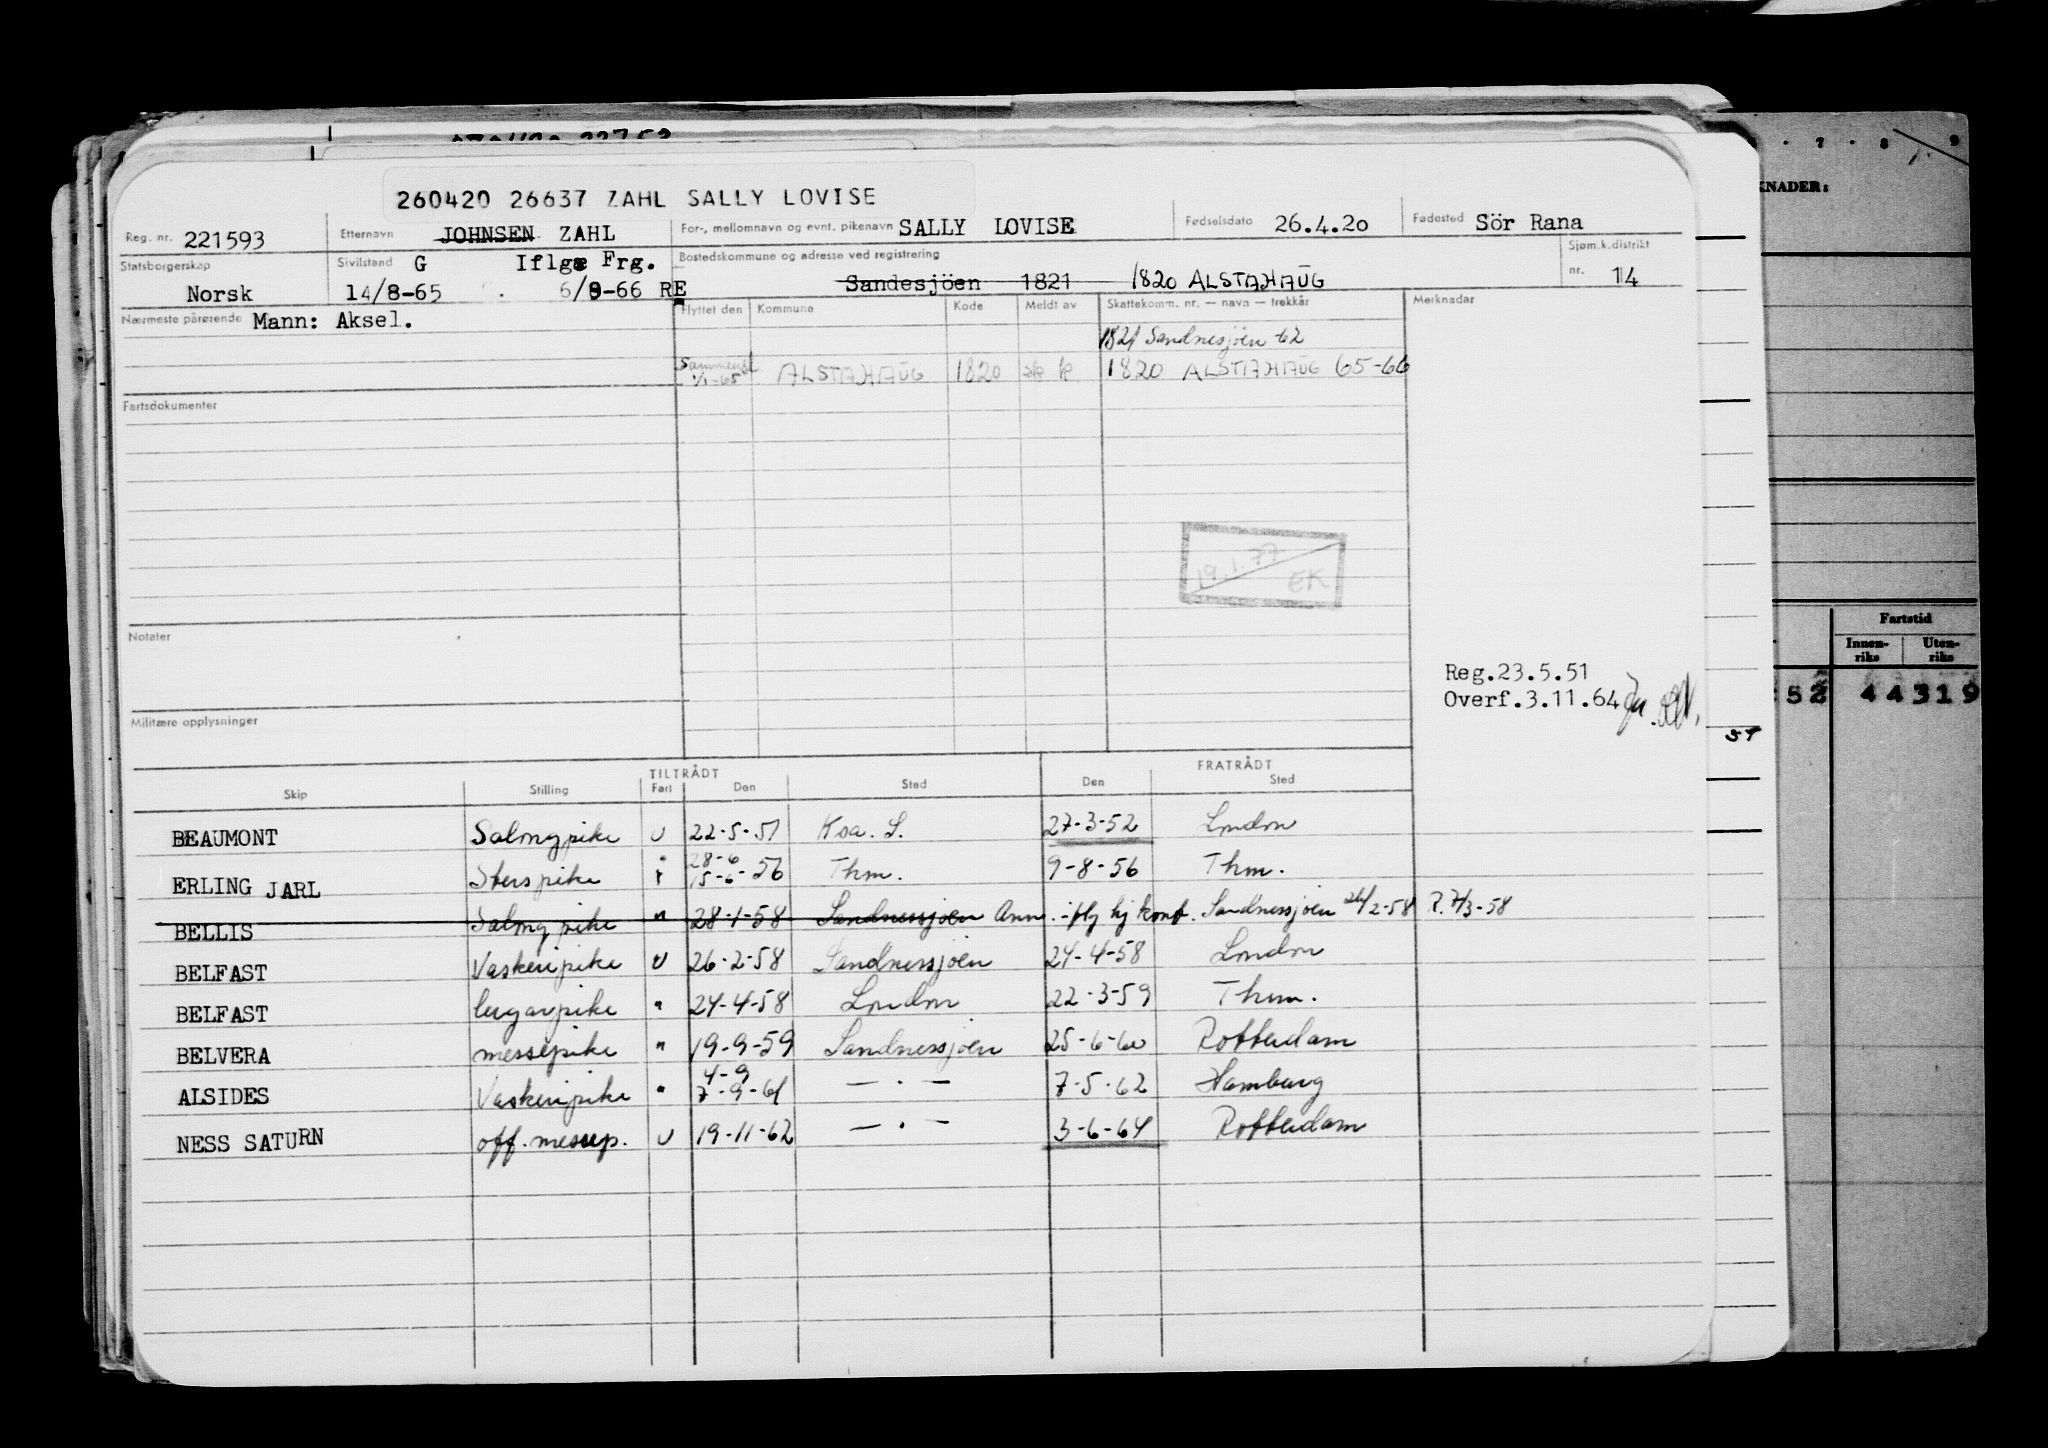 260420 26637 ZAHL SALLY LOVISE
Reg. nr. 221593 Etternavn JOHNSEN ZAHL For-, mellomnavn og evnt. pikenavn SALLY LOVISE Fødselsdato 26.4.20 Fødested Sör Rana
Statsborgerskap Norsk Sivilstand G Iflge Frg. 14/8-65 6/9-66 RE Bostedskommune og adresse ved registrering Sandesjöen 1821 1820 ALSTAHAUG Sjøm.k.distrikt nr. 14
Nærmeste pårørende Mann: Aksel. Flyttet den Kommune Kode Meldt av Skattekomm. nr. — navn — trekkår Merknader
1821 Sandnesjöen -62
Sammensl. 1/1-65 ALSTAHAUG 1820 1820 ALSTAHAUG 65-66
Fartsdokumenter
19.1.77 EK
Notater
Reg.23.5.51
Overf.3.11.64
Militære opplysninger
TILTRÅDT FRATRÅDT
Skip Stilling Fart Den Sted Den Sted
BEAUMONT Salongpike U 22-5-51 Ksa. S. 27-3-52 London
ERLING JARL Sterspike " 28-6 15-6-56 Thm. 9-8-56 Thm.
BELLIS Salongpike " 28-1-58 Sandnessjøen Ann. ifly hj konf. Sandnessjøen 26/2-58 R. 7/3-58
BELFAST Vaskeripike U 26-2-58 Sandnessjøen 24-4-58 London
BELFAST lugarpike " 24-4-58 London 22-3-59 Thm.
BELVERA messepike " 19-9-59 Sandnessjøen 25-6-60 Rotterdam
ALSIDES Vaskeripike " 4-9 7-9-61 — · — 7-5-62 Hamburg
NESS SATURN off. messep. U 19-11-62 — · — 3-6-64 Rotterdam
7 · 8 9
KNADER:
Fartstid
Innenriks Utenriks
52 44319
51